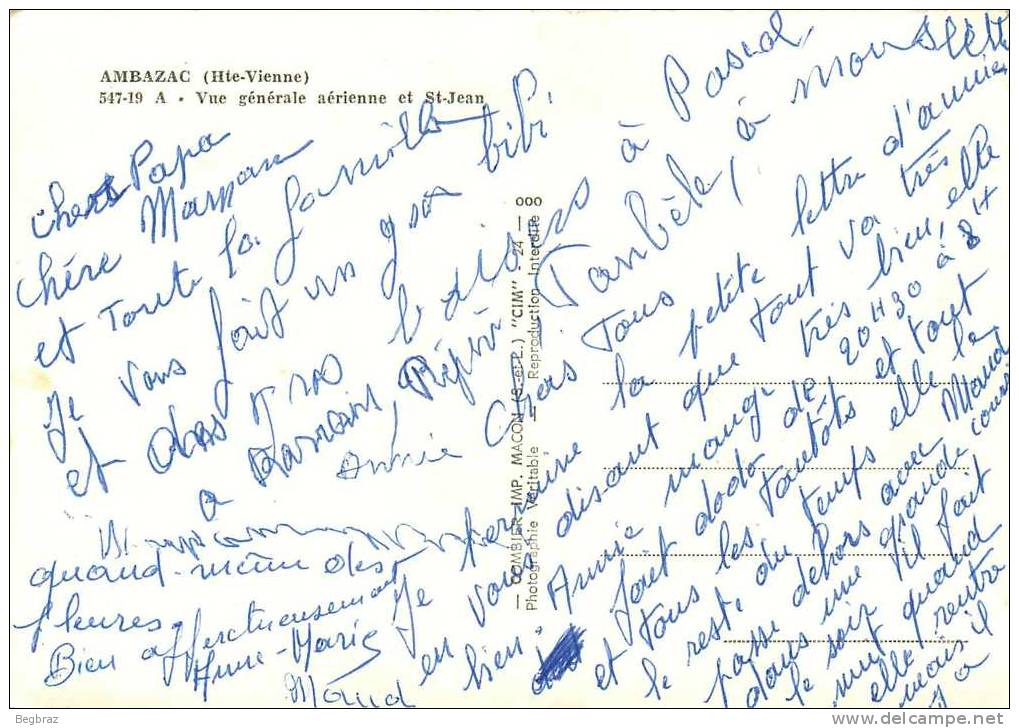 AMBAZAC (Hte-Vienne)
547-19 A - Vue générale aérienne et St-Jean
chers Papa
chére Maman
et toute la famille
Je vous fait un gros bibi
et des gros
a
Annie
— COMBIER IMP. MACON (S.-et-L.) "CIM" - 24 - ooo
Photographie Véritable - Reproduction Interdite
à Pascal
à
Chers Tous
Je termine la petite lettre d'annie
en vous disant que tout va très
bien. Annie mange très bien, elle
fait dodo de 20H30 à 8H
et tous les tantôts et tout
le reste du temps elle le
passe dehors avec Maud
dans une grande cour
le soir qu'il fait
nuit quand
elle rentre
mais il
y a
quand-même des
fleurs.
Bien affectueusement
Anne-Marie
Maud
Begbraz
www.delcampe.net